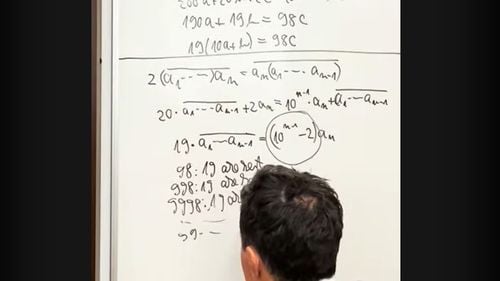 190a+19b=98c
19(10a+b)=98c
2(a₁---)aₙ=aₙ(a₁--- aₙ₋₁)
20·a₁---aₙ₋₁+2aₙ=10ⁿ⁻¹·aₙ+a₁---aₙ₋₁
19·a₁---aₙ₋₁=(10ⁿ⁻¹-2)aₙ
98:19 are rest
998:19 are
9998:19 ar
99--